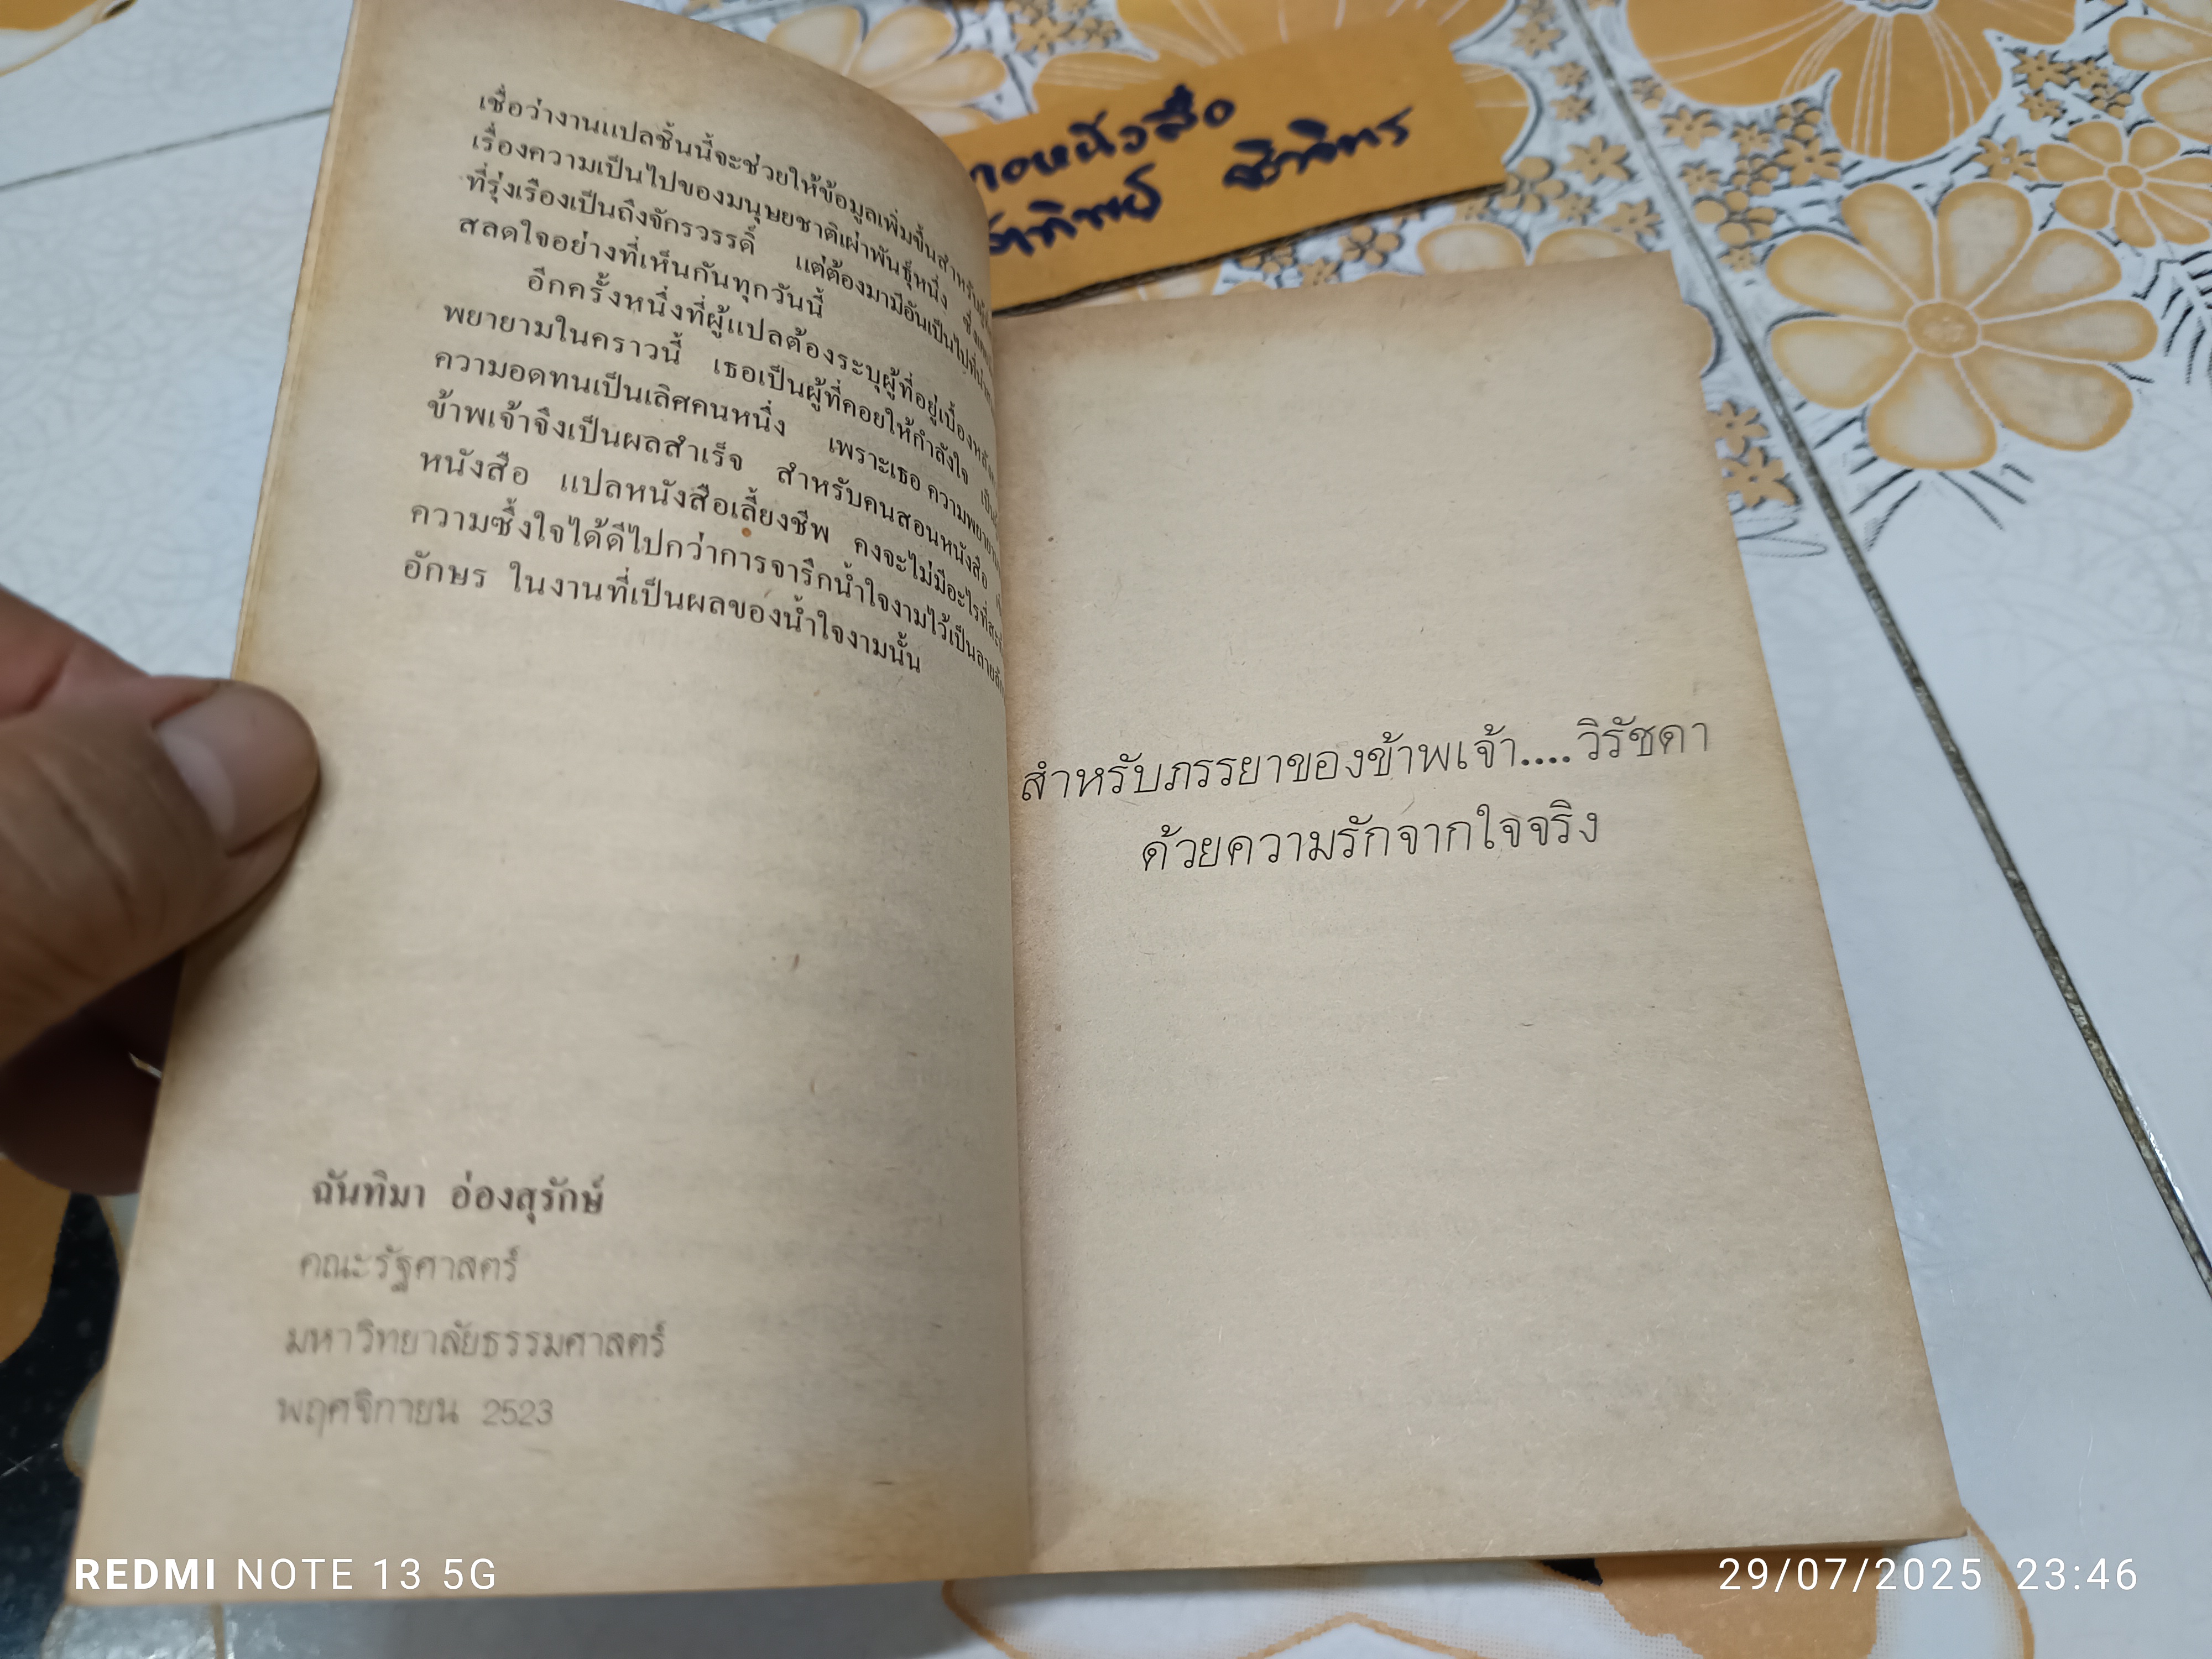 เชื่อว่างานแปลชิ้นนี้จะช่วยให้ข้อมูลเพิ่มขึ้นสำหรับ
เรื่องความเป็นไปของมนุษยชาติเผ่าพันธุ์หนึ่ง
ที่รุ่งเรืองเป็นถึงจักรวรรดิ์ แต่ต้องมามีอันเป็นไปที่น่า
สลดใจอย่างที่เห็นกันทุกวันนี้
อีกครั้งหนึ่งที่ผู้แปลต้องระบุผู้ที่อยู่เบื้องหลัง
พยายามในคราวนี้ เธอเป็นผู้ที่คอยให้กำลังใจ
ความอดทนเป็นเลิศคนหนึ่ง เพราะเธอ ความพยายาม
ข้าพเจ้าจึงเป็นผลสำเร็จ สำหรับคนสอนหนังสือ
หนังสือ แปลหนังสือเลี้ยงชีพ คงจะไม่มีอะไรที่
ความซึ้งใจได้ดีไปกว่าการจารึกน้ำใจงามไว้เป็นลายลัก
อักษร ในงานที่เป็นผลของน้ำใจงามนั้น
ฉันทิมา อ่องสุรักษ์
คณะรัฐศาสตร์
มหาวิทยาลัยธรรมศาสตร์
พฤศจิกายน 2523
สำหรับภรรยาของข้าพเจ้า....วิรัชดา
ด้วยความรักจากใจจริง
REDMI NOTE 13 5G
29/07/2025 23:46